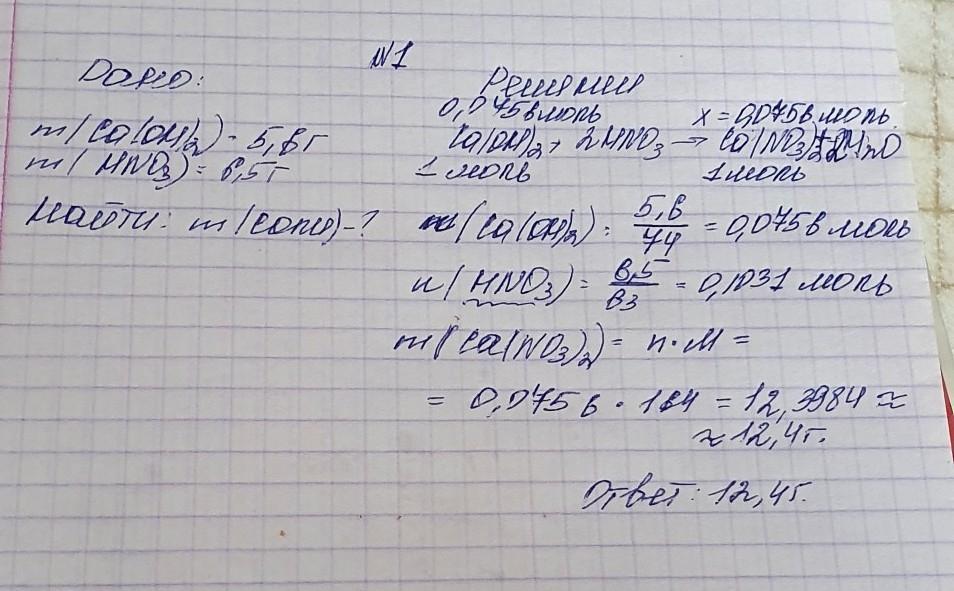 N1
Дано:
m(Ca(OH)2) - 5,6г
m(HNO3) = 6,5г
Найти: m(соли)-?
Решении
0,0756моль x = 0,0756моль
Ca(OH)2 + 2HNO3 → Ca(NO3)2+2H2O
1 моль 1 моль
n(Ca(OH)2) = 5,6/74 = 0,0756 моль
n(HNO3) = 6,5/63 = 0,1031 моль
m(Ca(NO3)2) = n·M =
= 0,0756 · 164 = 12,3984 ≈
≈ 12,4г.
Ответ: 12,4г.